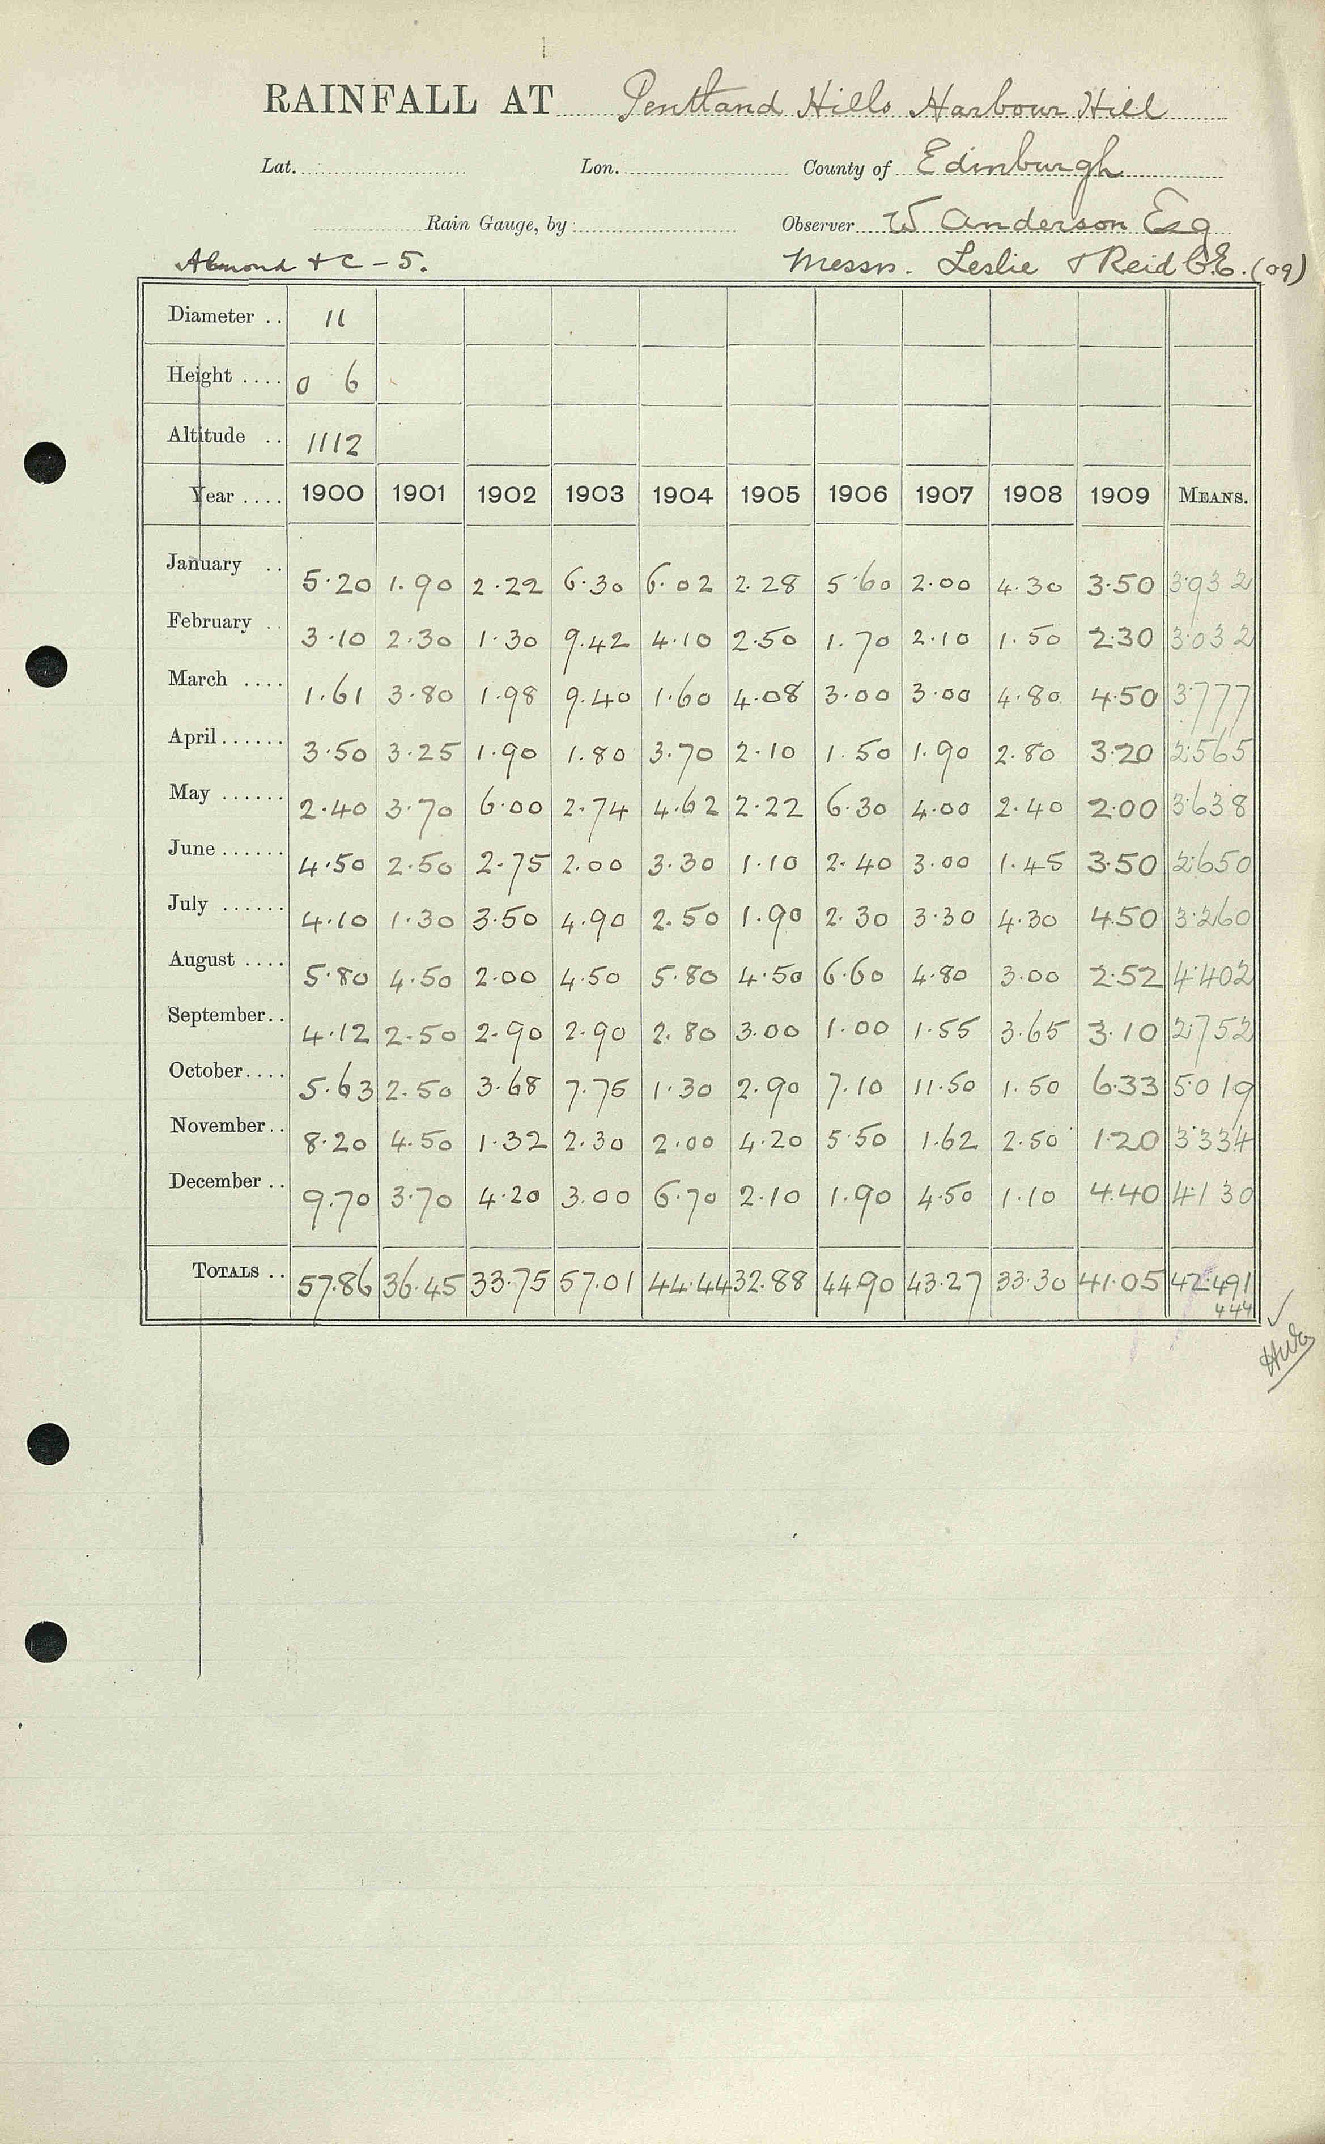 RAINFALL AT Pentland Hills Harbour Hill
Lat. Lon. County of Edinburgh
Rain Gauge, by Observer W Anderson Esq
Almond & C - 5. Messrs. Leslie & Reid C.E. (09)
Diameter .. 11
Height .... 0 6
Altitude .. 1112
Year .... 1900 1901 1902 1903 1904 1905 1906 1907 1908 1909 MEANS.
January .. 5.20 1.90 2.22 6.30 6.02 2.28 5.60 2.00 4.30 3.50 3.932
February .. 3.10 2.30 1.30 9.42 4.10 2.50 1.70 2.10 1.50 2.30 3.032
March .... 1.61 3.80 1.98 9.40 1.60 4.08 3.00 3.00 4.80 4.50 3.777
April...... 3.50 3.25 1.90 1.80 3.70 2.10 1.50 1.90 2.80 3.20 2.565
May ...... 2.40 3.70 6.00 2.74 4.62 2.22 6.30 4.00 2.40 2.00 3.638
June...... 4.50 2.50 2.75 2.00 3.30 1.10 2.40 3.00 1.45 3.50 2.650
July ...... 4.10 1.30 3.50 4.90 2.50 1.90 2.30 3.30 4.30 4.50 3.260
August .... 5.80 4.50 2.00 4.50 5.80 4.50 6.60 4.80 3.00 2.52 4.402
September.. 4.12 2.50 2.90 2.90 2.80 3.00 1.00 1.55 3.65 3.10 2.752
October.... 5.63 2.50 3.68 7.75 1.30 2.90 7.10 11.50 1.50 6.33 5.019
November.. 8.20 4.50 1.32 2.30 2.00 4.20 5.50 1.62 2.50 1.20 3.334
December .. 9.70 3.70 4.20 3.00 6.70 2.10 1.90 4.50 1.10 4.40 4.130
TOTALS .. 57.86 36.45 33.75 57.01 44.44 32.88 44.90 43.27 33.30 41.05 42.491
444